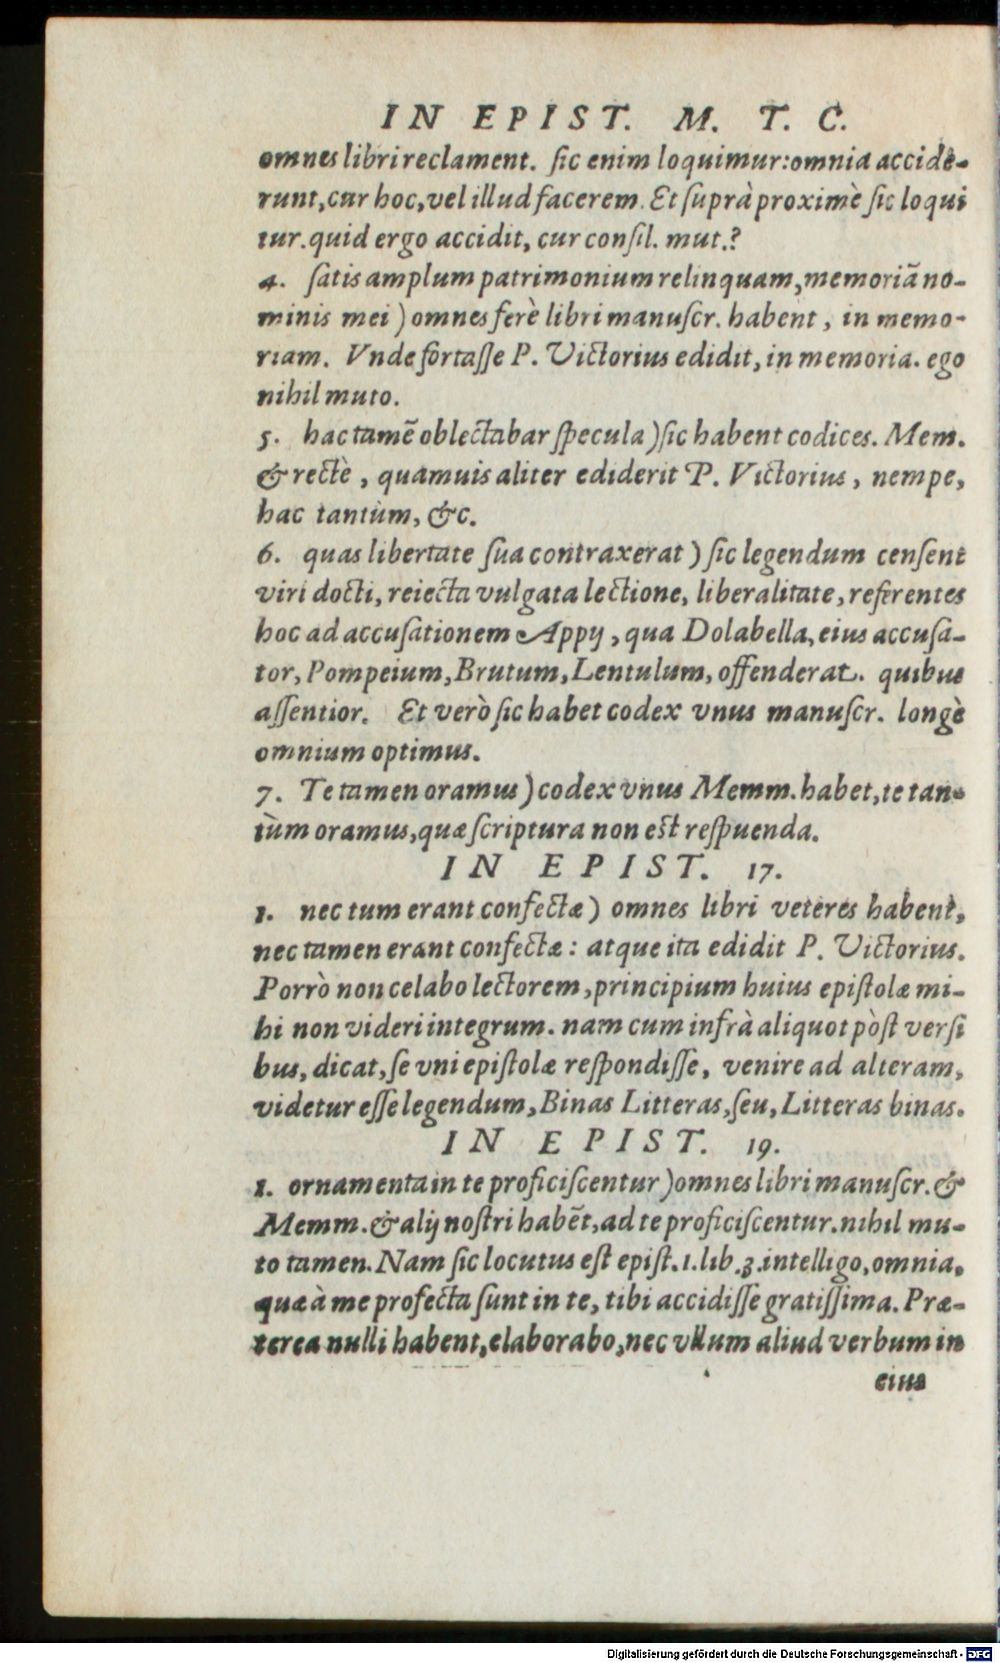 IN EPIST. M. T. C.
omnes libri reclament. sic enim loquimur: omnia accidê-
runt, cur hoc, vel illud facerem. Et suprà proximè sic loqui
tur. quid ergo accidit, cur consil. mut.?
4. satis amplum patrimonium relinquam, memoriã no-
minis mei) omnes ferè libri manuscr. habent, in memo-
riam. Vnde fortasse P. Victorius edidit, in memoria. ego
nihil muto.
5. hac tamẽ oblectabar specula) sic habent codices. Mem.
& rectè, quamuis aliter ediderit P. Victorius, nempe,
hac tantùm, &c.
6. quas libertate sua contraxerat) sic legendum censent
viri docti, reiecta vulgata lectione, liberalitate, referentes
hoc ad accusationem Appij, qua Dolabella, eius accusa-
tor, Pompeium, Brutum, Lentulum, offenderat. quibus
assentior. Et verò sic habet codex vnus manuscr. longè
omnium optimus.
7. Te tamen oramus) codex vnus Memm. habet, te tan-
tùm oramus, quæ scriptura non est respuenda.
IN EPIST. 17.
1. nec tum erant confectæ) omnes libri veteres habent,
nec tamen erant confectæ: atque ita edidit P. Victorius.
Porrò non celabo lectorem, principium huius epistolæ mi-
hi non videri integrum. nam cum infrà aliquot pòst versi
bus, dicat, se vni epistolæ respondisse, venire ad alteram,
videtur esse legendum, Binas Litteras, seu, Litteras binas.
IN EPIST. 19.
1. ornamenta in te proficiscentur) omnes libri manuscr. &
Memm. & alij nostri habẽt, ad te proficiscentur. nihil mu-
to tamen. Nam sic locutus est epist. 1. lib. 3. intelligo, omnia,
quæ à me profecta sunt in te, tibi accidisse gratissima. Præ-
terea nulli habent, elaborabo, nec vllum aliud verbum in
eius
Digitalisierung gefördert durch die Deutsche Forschungsgemeinschaft - DFG